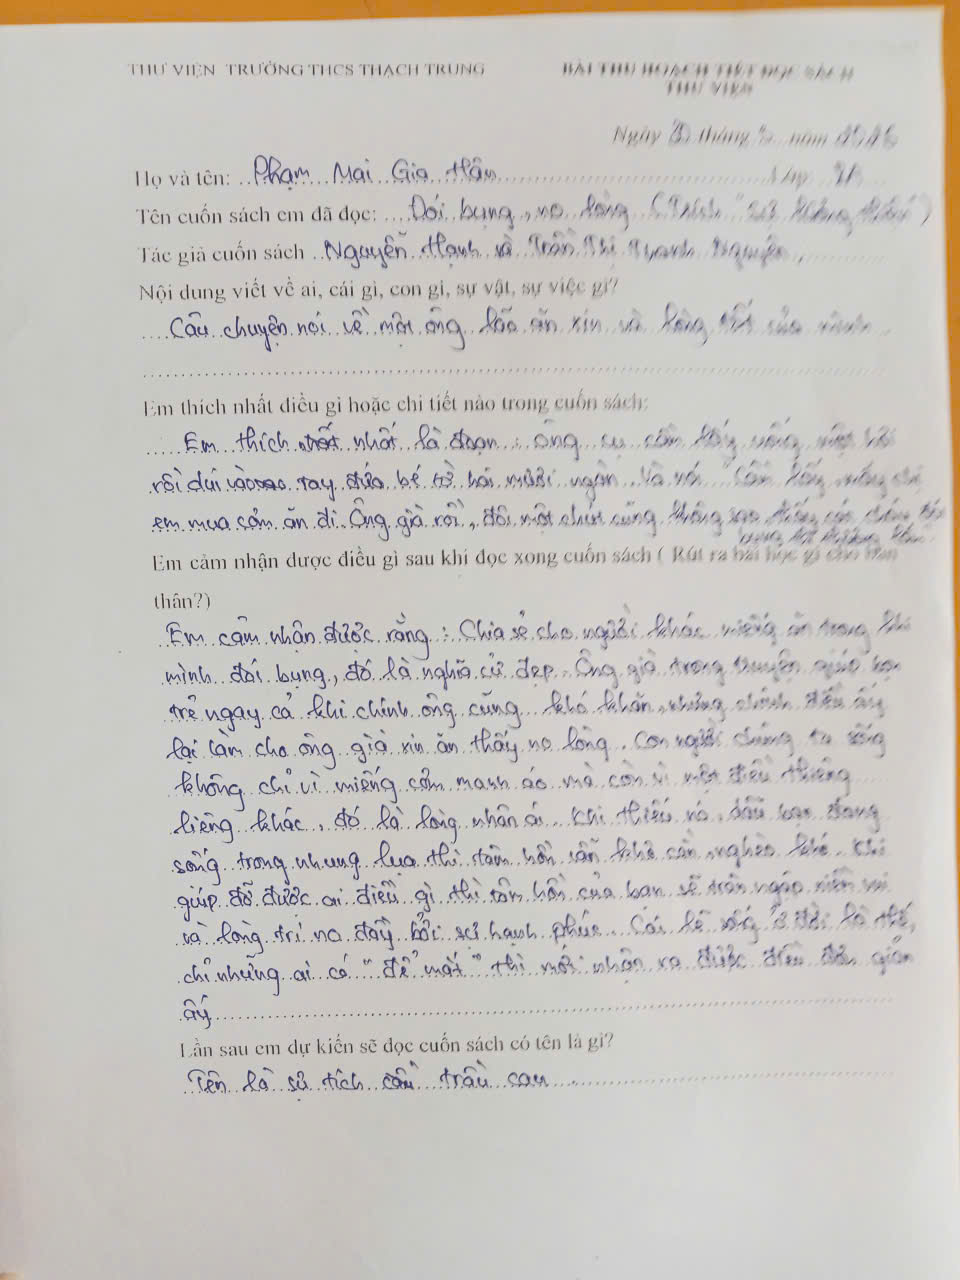 THƯ VIỆN TRƯỜNG THCS THẠCH TRUNG
BÀI THU HOẠCH TIẾT ĐỌC SÁCH
THƯ VIỆN
Ngày tháng năm
Họ và tên: Phạm Mai Gia Hân Lớp
Tên cuốn sách em đã đọc: Đói bụng, no lòng (Trích
Tác giả cuốn sách Nguyễn Hạnh và Trần Thị Thanh Nguyên
Nội dung viết về ai, cái gì, con gì, sự vật, sự việc gì?
Câu chuyện nói về một ông lão ăn xin và lòng tốt của mình
Em thích nhất điều gì hoặc chi tiết nào trong cuốn sách:
Em thích nhất là đoạn: Ông cụ cầm lấy uống một hơi
rồi dúi vào tay đứa bé tờ hai mươi ngàn. Và nói "Cầm lấy
em mua cơm ăn đi. Ông già rồi, đói một chút cũng không sao
Em cảm nhận được điều gì sau khi đọc xong cuốn sách ( Rút ra bài học gì cho bản
thân?)
Em cảm nhận được rằng: Chia sẻ cho người khác miếng ăn trong khi
mình đói bụng, đó là nghĩa cử đẹp. Ông già trong truyện giúp bạn
trẻ ngay cả khi chính ông cũng khó khăn, nhưng chính điều ấy
lại làm cho ông già xin ăn thấy no lòng. Con người chúng ta sống
không chỉ vì miếng cơm manh áo mà còn vì một điều thiêng
liêng khác, đó là lòng nhân ái. Khi thiếu nó, dẫu bạn đang
sống trong nhung lụa thì tâm hồn vẫn khô cằn, nghèo khó. Khi
giúp đỡ được ai điều gì thì tâm hồn của bạn sẽ tràn ngập niềm vui
và lòng trĩ no đầy bởi sự hạnh phúc. Cái lẽ sống ở đời là thế,
chỉ những ai có "để mắt" thì mới nhận ra được điều đơn giản
ấy
Lần sau em dự kiến sẽ đọc cuốn sách có tên là gì?
Tên là sự tích cây trầu cau